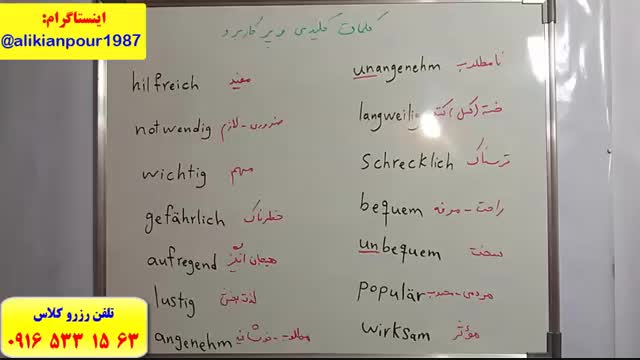 اینستاگرام:
@alikianpour1987
کلمات کلیدی و پر کاربرد
hilfreich مفید
notwendig ضروری - لازم
wichtig مهم
gefährlich خطرناک
aufregend هیجان انگیز
lustig لذت بخش
angenehm مطلوب -
unangenehm نامطلوب
langweilig خسته
schrecklich ترسناک
bequem راحت - مرفه
unbequem سخت
populär مردمی - محبوب
wirksam مؤثر
تلفن رزرو کلاس
۰۹۱۶ ۵۳۳ ۱۵ ۶۳